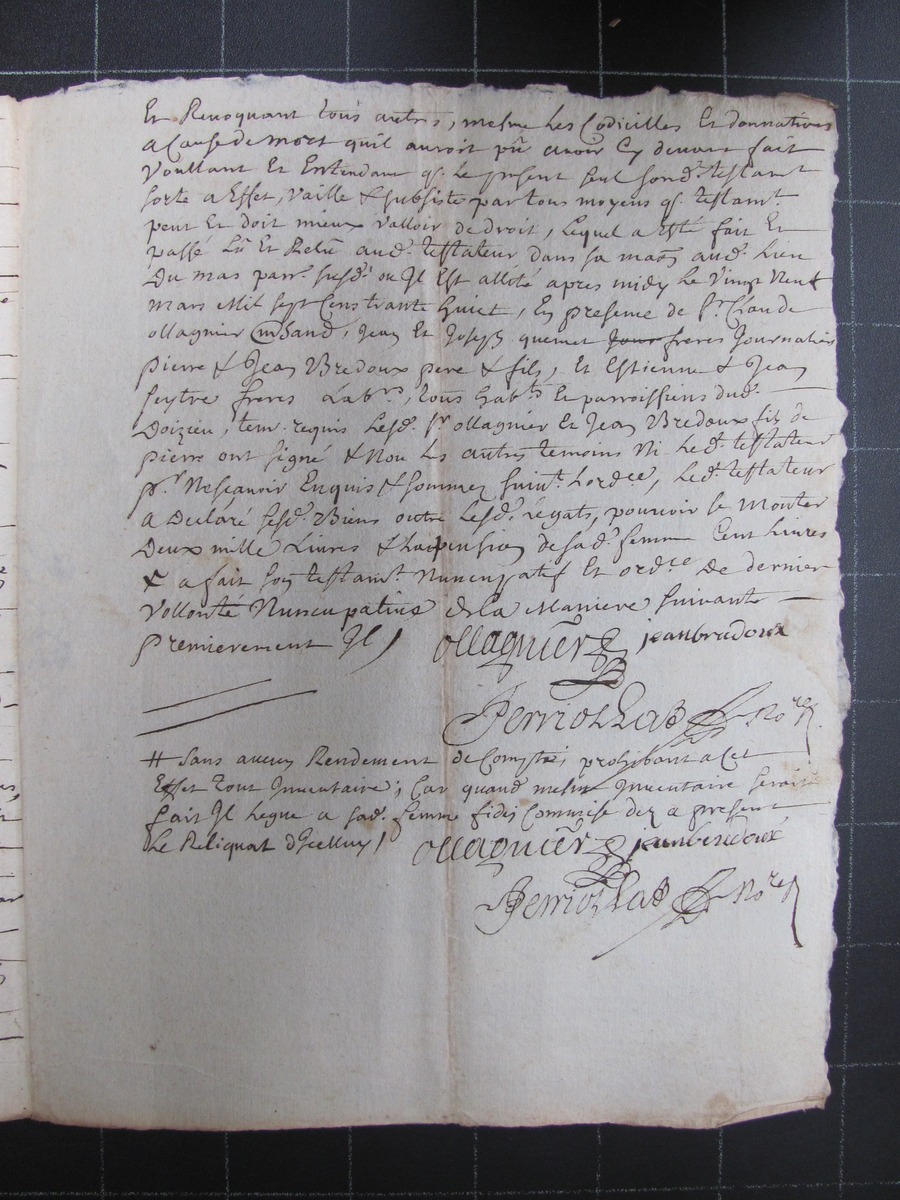 Et Revoquant tous autres, mesme les Codicilles Et donnatives
a Cause de mort quil auroit pû avoir Cy devant fait
Voullant Et Entendant q. le present seul sond. testamt
sorte a Effet, Vaille & subsiste par tous moyens q. testamt.
peut Et doit mieux valloir de droit, Lequel a Esté fait Et
passé Lû Et Relu aud. testateur dans sa maon aud. Lieu
Du mas parr. susd. ou Il Est allité apres midy Le Vingt Neuf
mars Mil sept Cens trante huict, En presence de Sr. Claude
ollagnier Jean Et Joseph quemet freres Journaliers
pierre & Jean Bredoux pere & fils, Et Estienne & Jean
seytre freres Labrs, tous habts Et parroissiens dud.
Doizieu, tem. requis Lesd. Sr ollagnier Et Jean Bredoux fils de
pierre ont signé & Non les autres temoins Ni Led. testateur
pr. Nescavoir Enquis & sommez suivt. Lordce, Led. testateur
a Declaré sesd. Biens outre Lesd. Legats, pouvoir se monter
Deux mille Livres & la pension de sad. femme Cent Livres
& a fait son testamt. Nuncupatif Et ordce De derniere
Vollonté Nuncupative de la Maniere suivante
premierement Il) ollagnier jeanbredoux
Perriollat Nore
# Sans aucun Rendement de Comptes prohibant a Cet
Effet tout Inventaire; Car quand mesme Inventaire seroit
fait Il Legue a sad. femme fideicommise dez a present
Le Reliquat dIcelluy) ollagnier jeanbredoux
Perriollat Nore